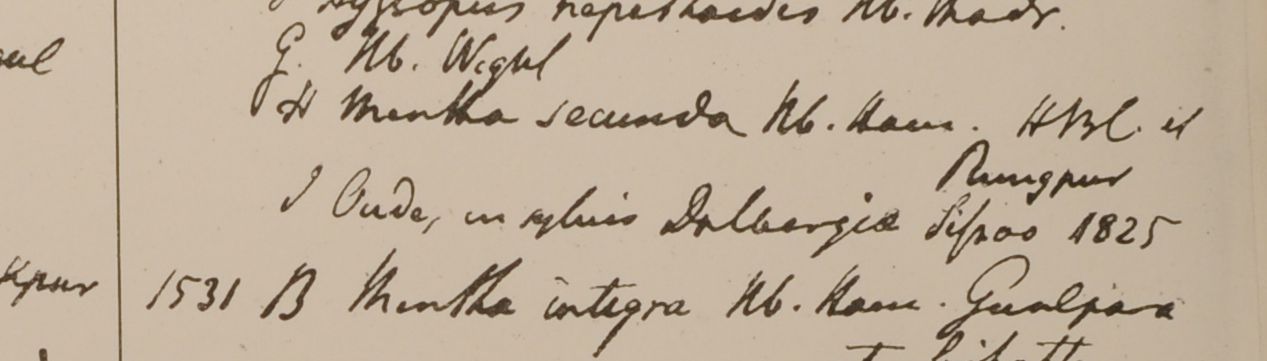 Hyssopus nepethoides Hb. Madr.
G. Hb. Wight
H Mentha secunda Hb. Ham. HBC. et
Rungpur
I Oude, in sylvis Dalbergiæ Sissoo 1825
1531 B Mentha integra Hb. Ham. Gualpara